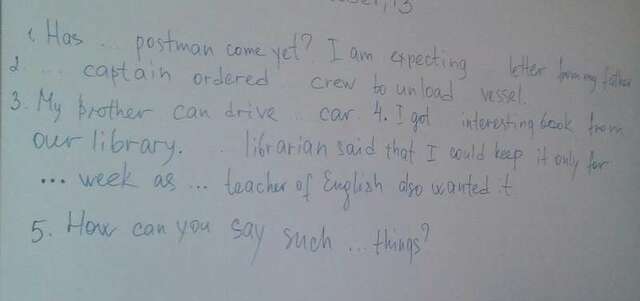 1. Has ... postman come yet? I am expecting letter from my father
2. ... captain ordered crew to unload vessel.
3. My brother can drive .. car. 4. I got interesting book from
our library. .. librarian said that I could keep it only for
... week as ... teacher of English also wanted it
5. How can you say such ... things?